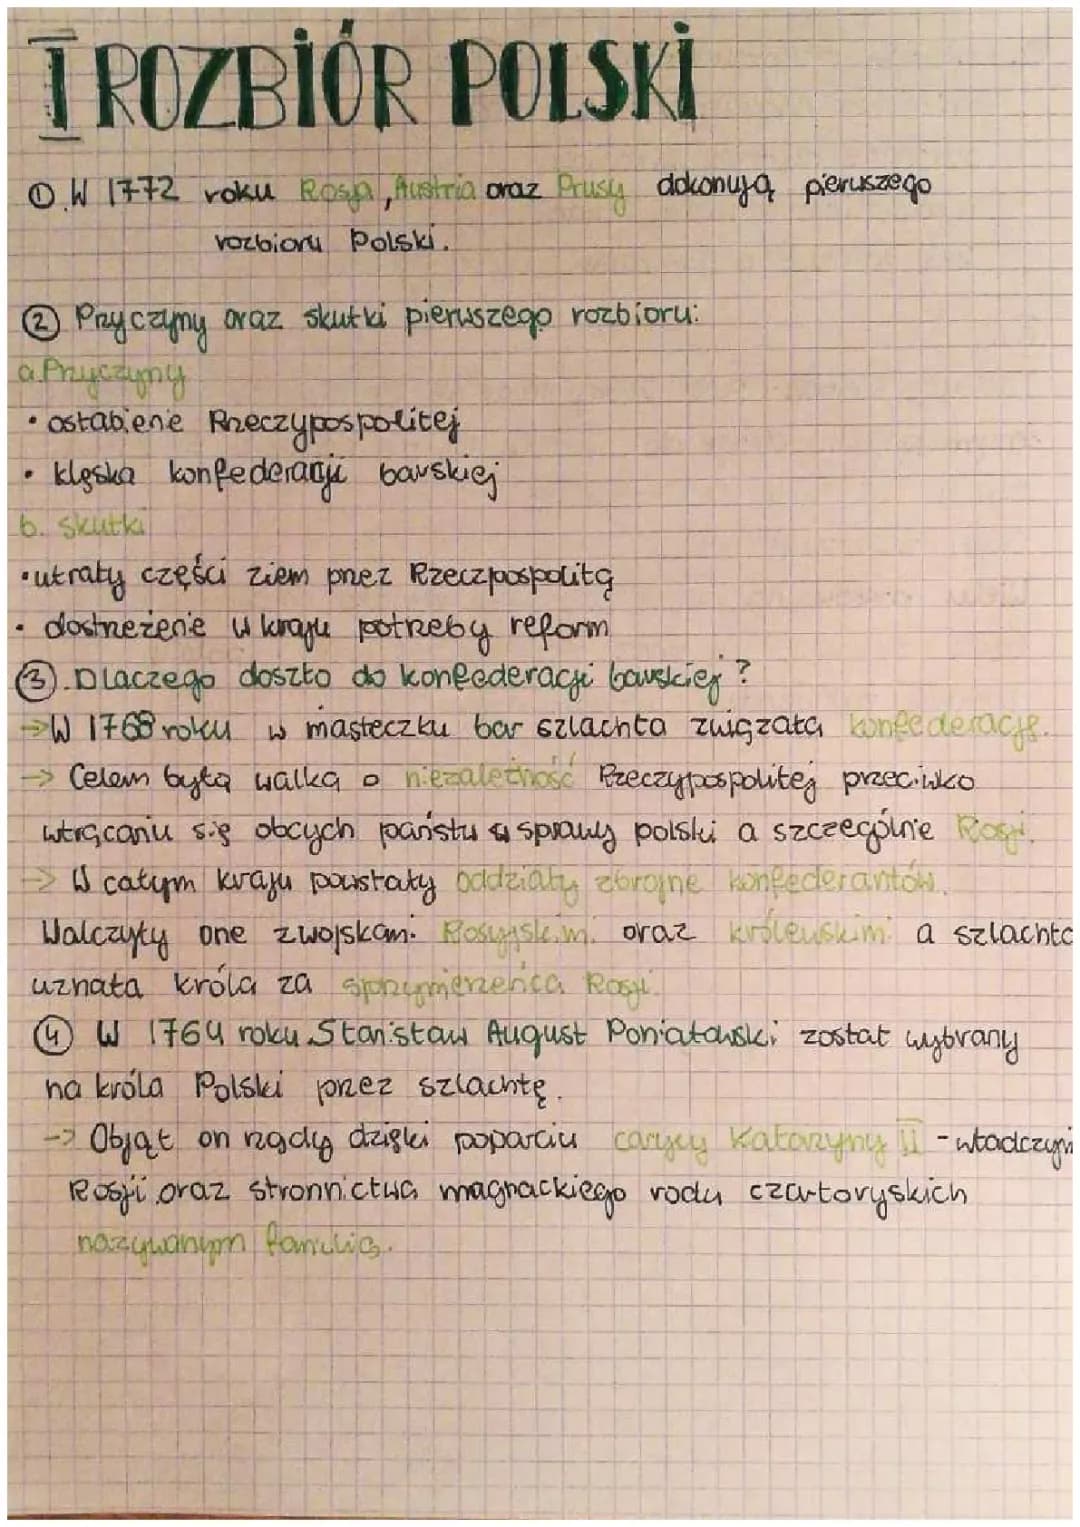 I ROZBIÓR POLSKI
①.W 1772 roku Rosja, Austria oraz Prusy dokonują pierwszego
rozbioru Polski.
② Przyczyny oraz skutki pierwszego rozbioru:
a.Przyczyny
• osłabienie Rzeczypospolitej
• klęska konfederacji barskiej
b. skutki
• utraty części ziem przez Rzeczpospolitą
• dostrzeżenie w kraju potrzeby reform
③.Dlaczego doszło do konfederacji barskiej?
→W 1768 roku w masteczku bar szlachta związała konfederację.
→ Celem byłą walką o niezależność Rzeczypospolitej przeciwko
wtrącaniu się obcych państw w sprawy polski a szczególnie Rosji.
→ W całym kraju powstały oddziały zbrojne konfederantów.
Walczyły one z wojskami Rosyjskimi oraz królewskimi a szlachta
uznała króla za sprzymierzeńca Rosji.
④ W 1764 roku Stanisław August Poniatowski został wybrany
na króla Polski przez szlachtę.
-> Objął on rządy dzięki poparciu carycy Katarzyny II - władczyni
Rosji oraz stronnictwa magnackiego rodu czartoryskich
nazywanym familią.